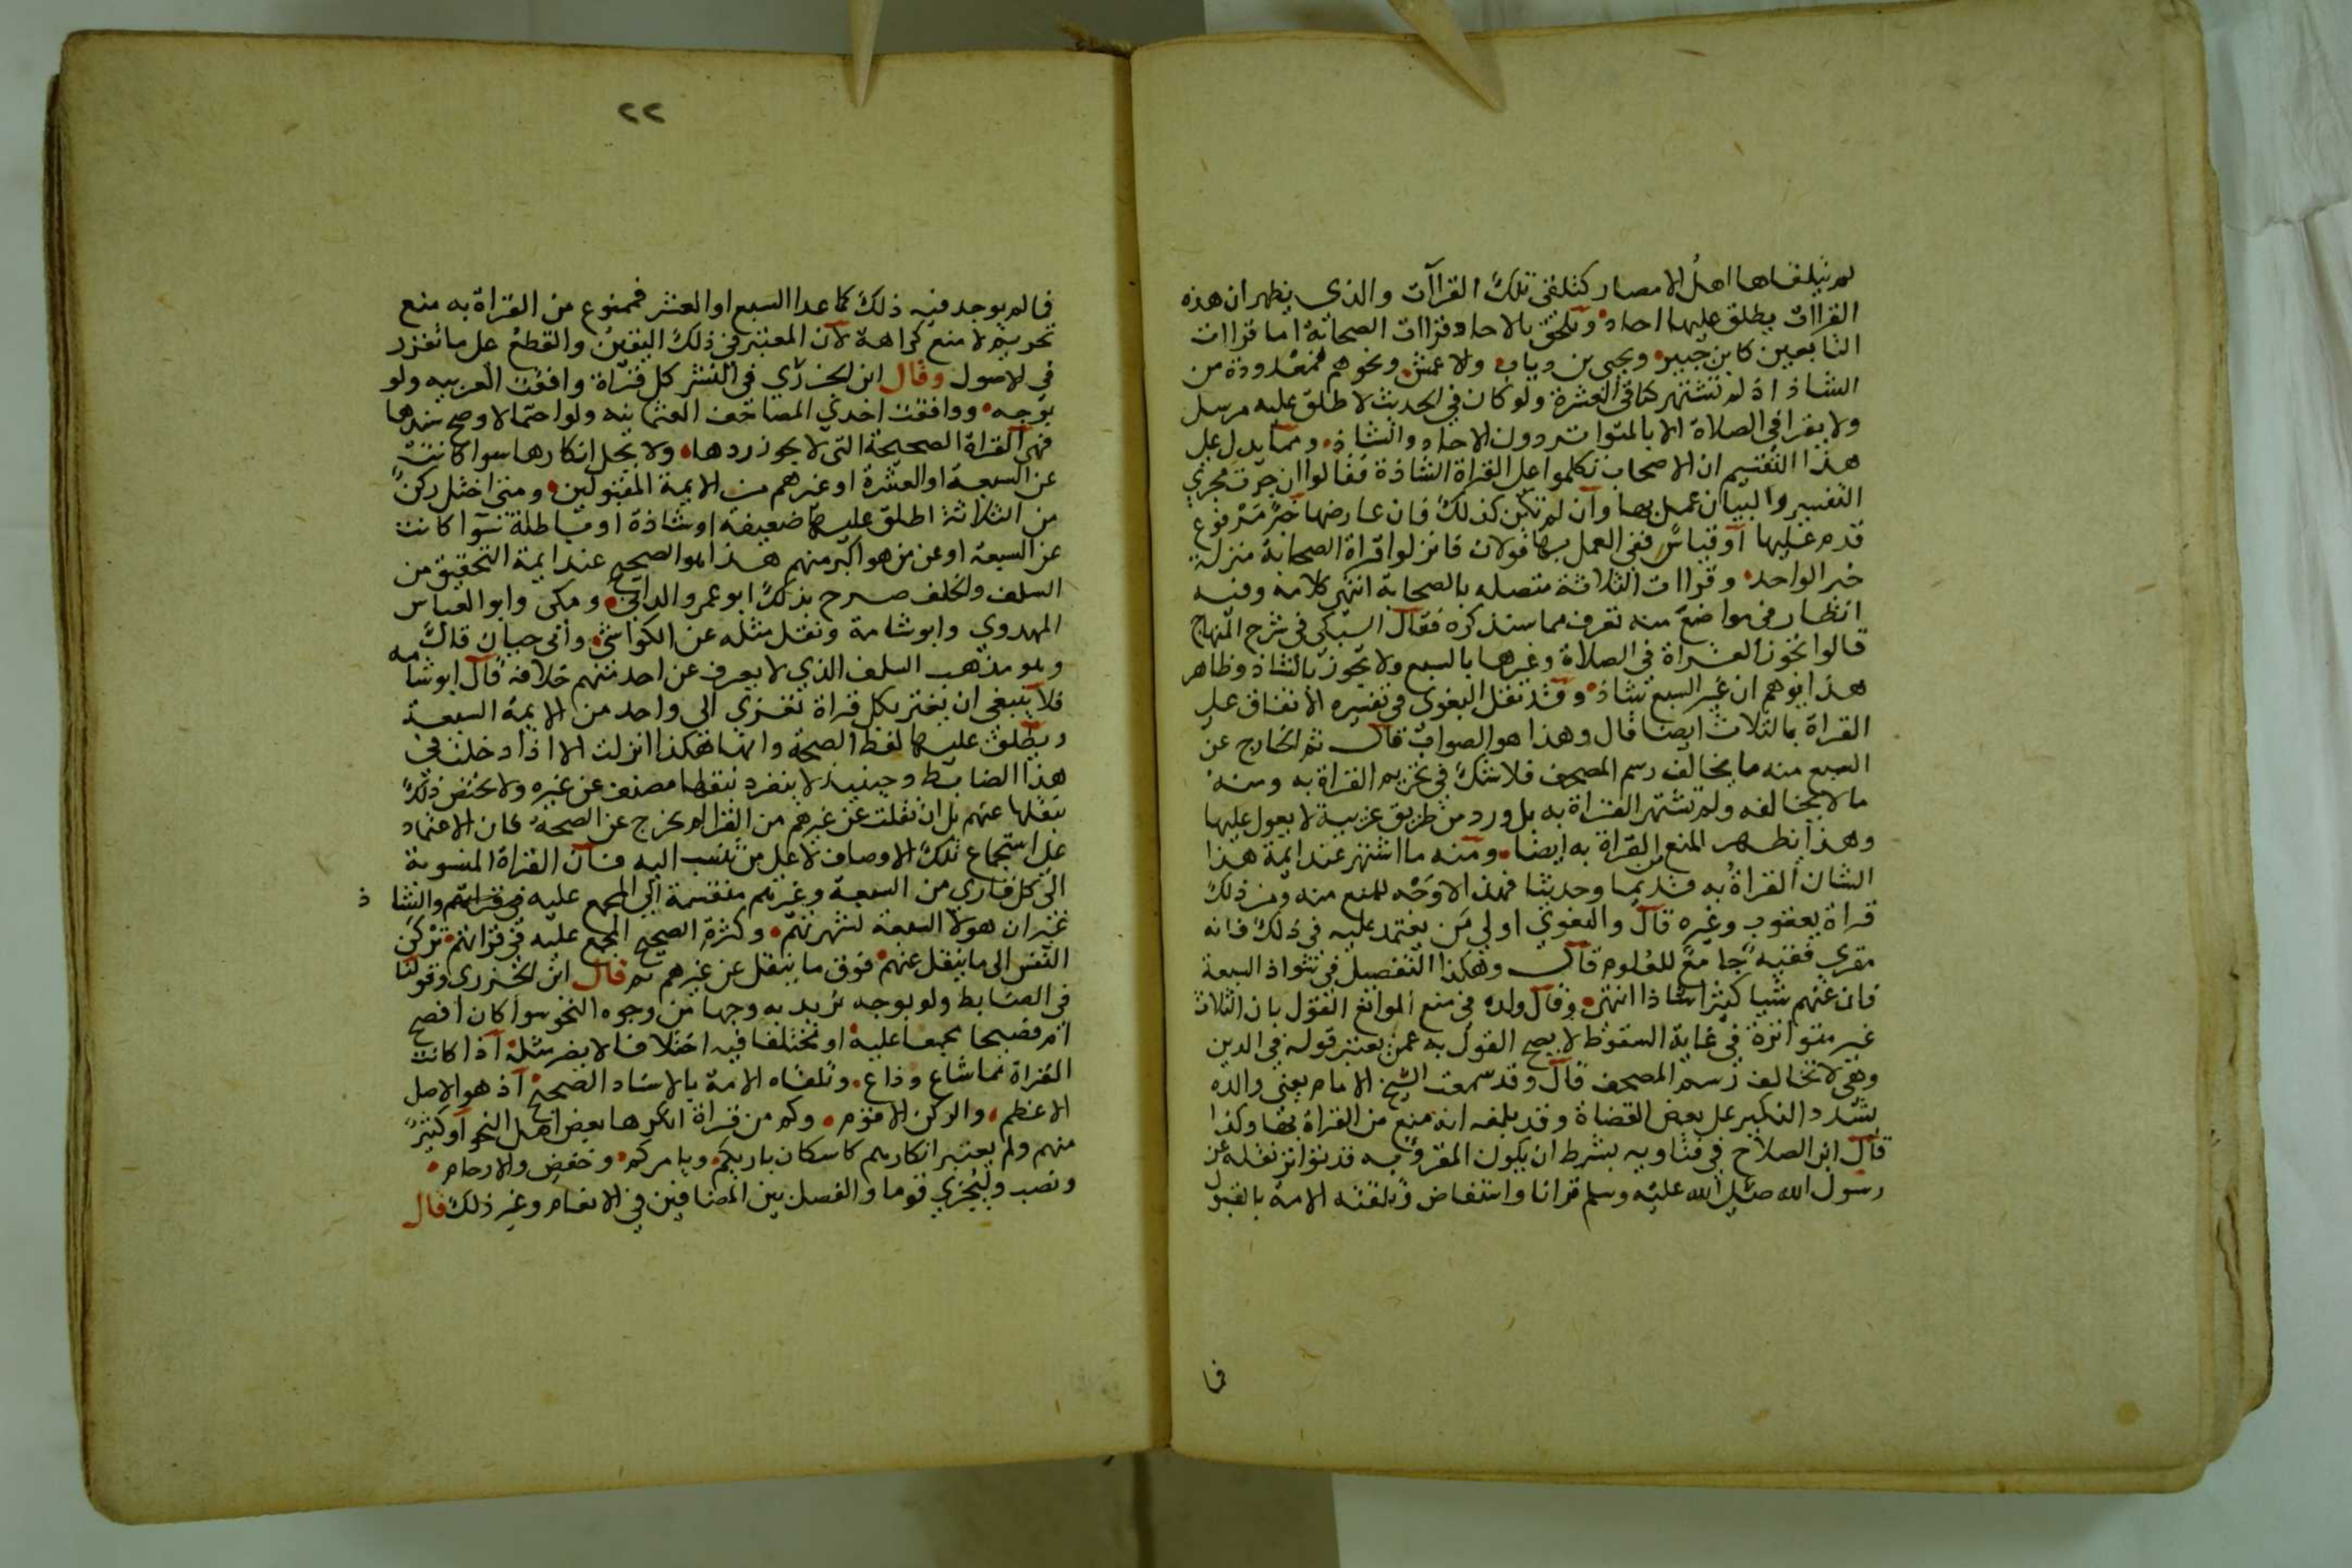 لم يتلقاها اهل الامصار كتلقي تلك القراآت والذي يظهر ان هذه
القراات يطلق عليها احاد وتلحق بالاحاد قراات الصحابة اما قراات
التابعين كابن جبير ويحيى بن وثاب والاعمش ونحوهم فمعدودة من
الشاذ اذ لم تشتهر كباقي العشرة ولو كان في الحديث لاطلق عليه مرسل
ولا يقرا في الصلاة الا بالمتواتر دون الاحاد والشاذ ومما يدل على
هذا التقسيم ان الاصحاب تكلموا على القراة الشاذة فقالوا ان جرت مجري
التفسير والبيان عمل بها وان لم تكن كذلك فان عارضها خبر مرفوع
قدم عليها او قياس ففي العمل بها قولان فانزلوا قراة الصحابة منزلة
خبر الواحد وقراات الثلاثة متصله بالصحابة انتهى كلامه وفيه
انظار في مواضع منه تعرف مما سنذكره فقال السبكي في شرح المنهاج
قالوا تجوز القراة في الصلاة وغيرها بالسبع ولا تجوز بالشاذ وظاهر
هذا يوهم ان غير السبع شاذ وقد نقل البغوى في تفسيره الاتفاق على
القراة بالثلاث ايضا قال وهذا هو الصواب قال ثم الخارج عن
السبع منه ما يخالف رسم المصحف فلا شك في تحريم القراة به ومنه
ما لا يخالفه ولم تشتهر القراة به بل ورد من طريق غريبة لا يعول عليها
وهذا يظهر المنع من القراة به ايضا ومنه ما اشتهر عند ايمة هذا
الشان القراة به قديما وحديثا فهذا لا وجه للمنع منه ومن ذلك
قراة يعقوب وغيره قال والبغوي اولي من يعتمد عليه في ذلك فانه
مقري فقيه جامع للعلوم قال وهكذا التفصيل في شواذ السبعة
فان عنهم شيا كثيرا شاذا انتهى وقال ولده في منع الموانع القول بان الثلاث
غير متواترة في غاية السقوط لا يصح القول به عمن يعتبر قوله في الدين
وهي لا تخالف رسم المصحف قال وقد سمعت الشيخ الامام يعني والده
يشدد النكير على بعض القضاة وقد بلغه انه منع من القراة بها وكذا
قال ابن الصلاح في فتاويه بشرط ان يكون المقروء به قد تواتر نقله عن
رسول الله صلى الله عليه وسلم قرانا واستفاض وتلقته الامة بالقبول
فما
٢٢
فما لم يوجد فيه ذلك كما عدا السبع او العشر فممنوع من القراة به منع
تحريم لا منع كراهة لان المعتبر في ذلك اليقين والقطع على ما تقرر
في الاصول وقال ابن الجزري في النشر كل قراة وافقت العربيه ولو
بوجه ووافقت احدي المصاحف العثمانيه ولو احتمالا وصح سندها
فهي القراة الصحيحة التي لا يجوز ردها ولا يحل انكارها سوا كانت
عن السبعة او العشرة او غيرهم من الايمة المقبولين ومتى اختل ركن
من الثلاثة اطلق عليها ضعيفة او شاذة او باطلة سوا كانت
عن السبعة او عن من هو اكبر منهم هذا هو الصحيح عند ايمة التحقيق من
السلف والخلف صرح بذلك ابو عمرو الداني ومكى وابو العباس
المهدوي وابو شامة ونقل مثله عن الكواشي وأبي حيان قال
وهو مذهب السلف الذي لا يعرف عن احد منهم خلافه قال ابو شامه
فلا ينبغي ان يغتر بكل قراة تعزي الي واحد من الايمة السبعة
ويطلق عليها لفظ الصحة وانها هكذا انزلت الا اذا دخلت في
هذا الضابط وحينيذ لا ينفرد بنقلها مصنف عن غيره ولا يختص ذلك
بنقلها عنهم بل ان نقلت عن غيرهم من القرا لم يخرج عن الصحة فان الاعتماد
على استجماع تلك الاوصاف لا على من تنسب اليه فان القراة المنسوبة
الي كل قاري من السبعة وغيرهم منقسمة الي المجمع عليه في قراتهم والشاذ
غير ان هولا السبعة لشهرتهم وكثرة الصحيح المجمع عليه في قراتهم تركن
النفس الى ما ينقل عنهم فوق ما ينقل عن غيرهم ثم قال ابن الجزري وقولنا
في الضابط ولو بوجه نريد به وجها من وجوه النحو سوا كان افصح
ام فصيحا مجمعا عليه او مختلفا فيه اختلافا لا يضر مثله اذا كانت
القراة مما شاع وذاع وتلقاه الامة بالاسناد الصحيح اذ هو الاصل
الاعظم والركن الاقوم وكم من قراة انكرها بعض اهل النحو او كثير
منهم ولم يعتبر انكارهم كاسكان باريكم ويامركم وخفض والارحام
ونصب وليُجزي قوما والفصل بين المضافين في الانعام وغير ذلك قال